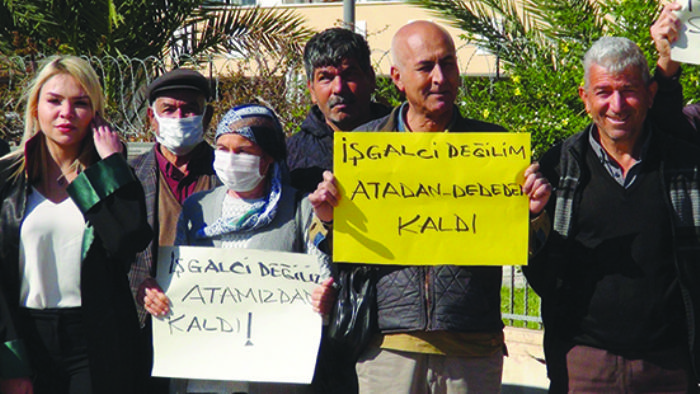 İŞGALCİ DEĞİLİM
ATADAN-DEDEDEN
KALDI
İŞGALCİ DEĞİLİZ
ATAMIZDAN
KALDI!